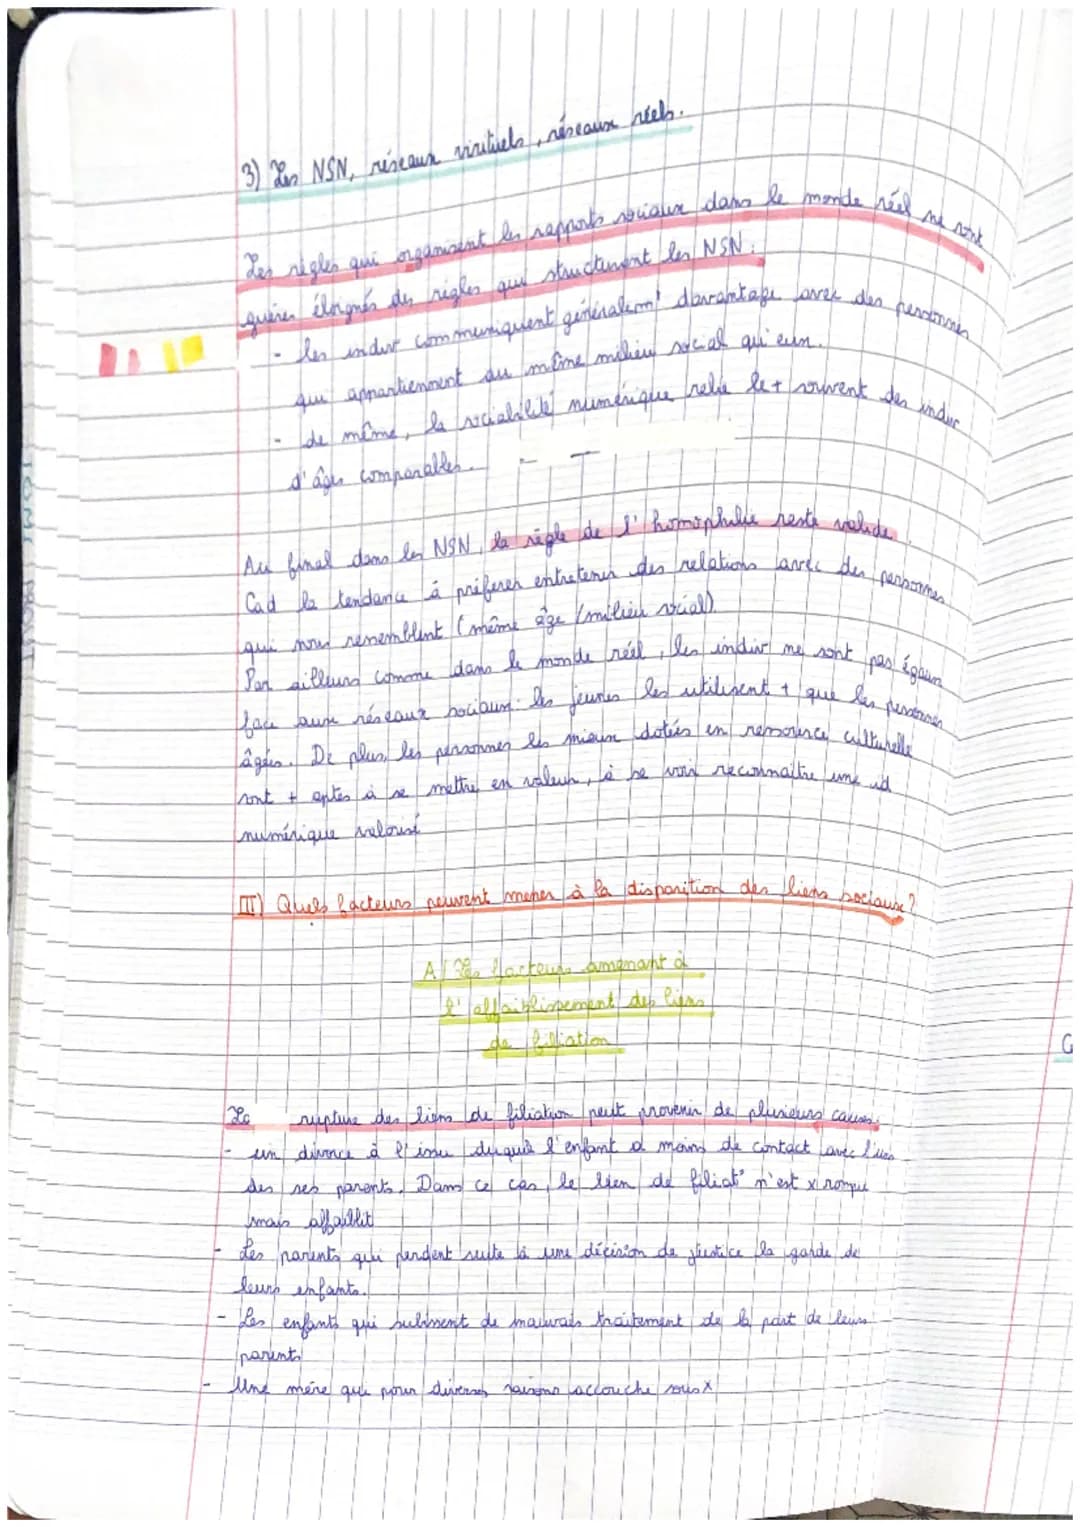 3) Les NSN, réseaux virituels, réseaux réels.
Les règles qui organisent les rapports sociaux dans le monde réel ne sont
guères éloignés des règles qui structurent les NSN :
- les indiv communiquent généralem^t davantage avec des personnes
qui appartiennent au même milieu social qui eux.
- de même, la sociabilité numérique relie le + souvent des indiv
d'âges comparables.
Au final dans les NSN, la règle de l'homophilie reste valide.
Cad la tendance à préférer entretenir des relations avec des personnes
qui nous ressemblent (même âge / milieu social).
Par ailleurs comme dans le monde réel, les indiv ne sont pas égaux
face aux réseaux sociaux: les jeunes les utilisent + que les personnes
âgés. De plus, les personnes les mieux dotés en ressource culturelle
sont + aptes à se mettre en valeur, à se voir reconnaître une id
numérique valorisé
III) Quels facteurs peuvent mener à la disparition des liens sociaux?
A/ Les facteurs amenant à
l'affaiblissement des liens
de filiation
La rupture des liens de filiation peut provenir de plusieurs causes.
- un divorce à l'issu duquel l'enfant a moins de contact avec l'un
des ses parents. Dans ce cas, le lien de filiat° n'est x rompu
mais affaiblit
- Les parents qui perdent suite à une décision de justice la garde de
leurs enfants.
- Les enfants qui subissent de mauvais traitement de la part de leurs
parents
- Une mère qui pour diverses raisons accouche sous X